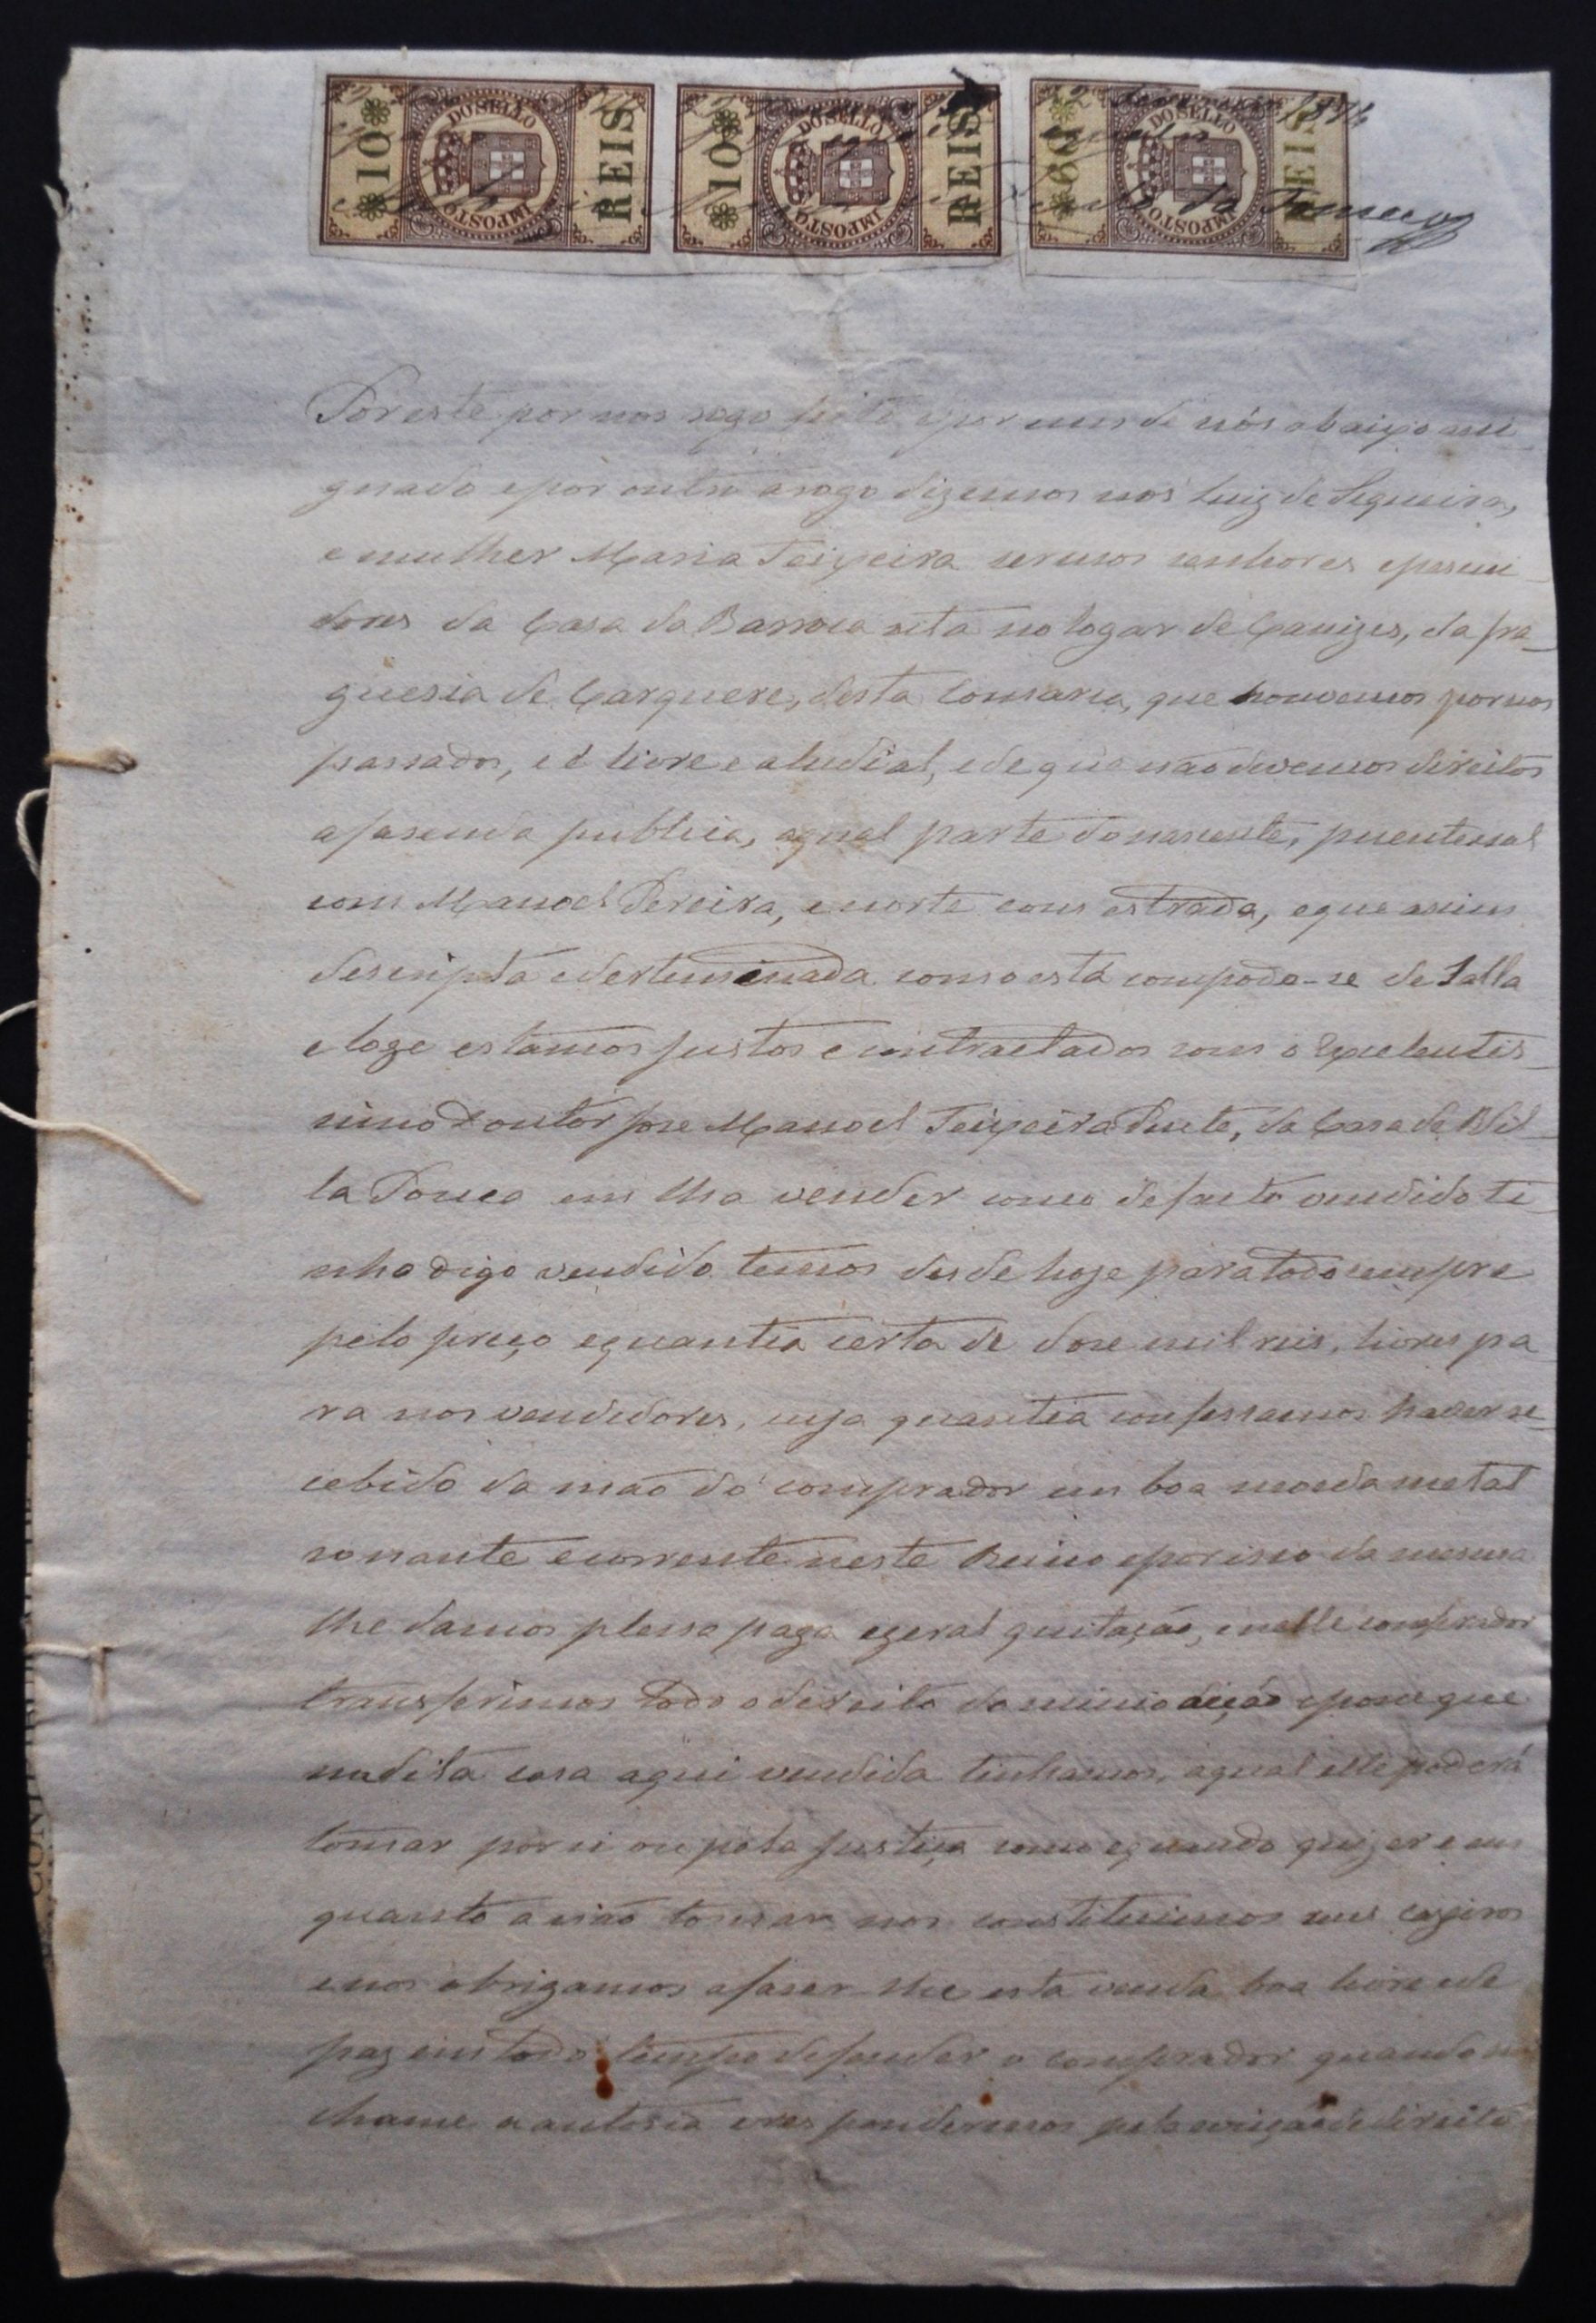 10 REIS IMPOSTO DO SELLO
10 REIS IMPOSTO DO SELLO
60 REIS IMPOSTO DO SELLO
da Fonseca
Por este por nos rogo feito e por um de nós abaixo assi
gnado e por outro a rogo dizemos nos Luiz de Sequeira,
e mulher Maria Teixeira sermos senhores e possui-
dores da Casa da Barroca sita no logar de Canizes, da fre-
guesia de Carquere, desta Comarca, que houvemos por nos
passados, e é livre e aludial, e de que não devemos direitos
a fasenda publica, a qual parte do nascente, puente e sul
com Manoel Pereira, e norte com estrada, e que assim
descripta e determinada como está compoda-se de Salla
e loge estamos justos e contractados com o Excelentis-
simo Doutor Jose Manoel Teixeira, da Casa de Vil-
la Pouca em lha vender como de facto vendido ti-
nha digo vendido temos desde hoje para todo sempre
pelo preço e quantia certa de dose mil reis, livres pa
ra nos vendedores, cuja quantia confessamos haver re-
cebido da mão do comprador em boa moeda metal
sonante e corrente neste Reino e por isso da mesma
lhe damos plena paga e geral quitação, e nelle comprador
transferimos todo o direito dominio acção e posse que
na dita casa aqui vendida tinhamos, a qual elle poderá
tomar por si ou pela justiça como e quando quizer e em
quanto a não tomar nos constituimos seus caseiros
e nos obrigamos a faser-lhe esta venda boa livre e de
paz em todo o tempo defender o comprador quando nos
chame a autoria e respondermos pela evicção de direito